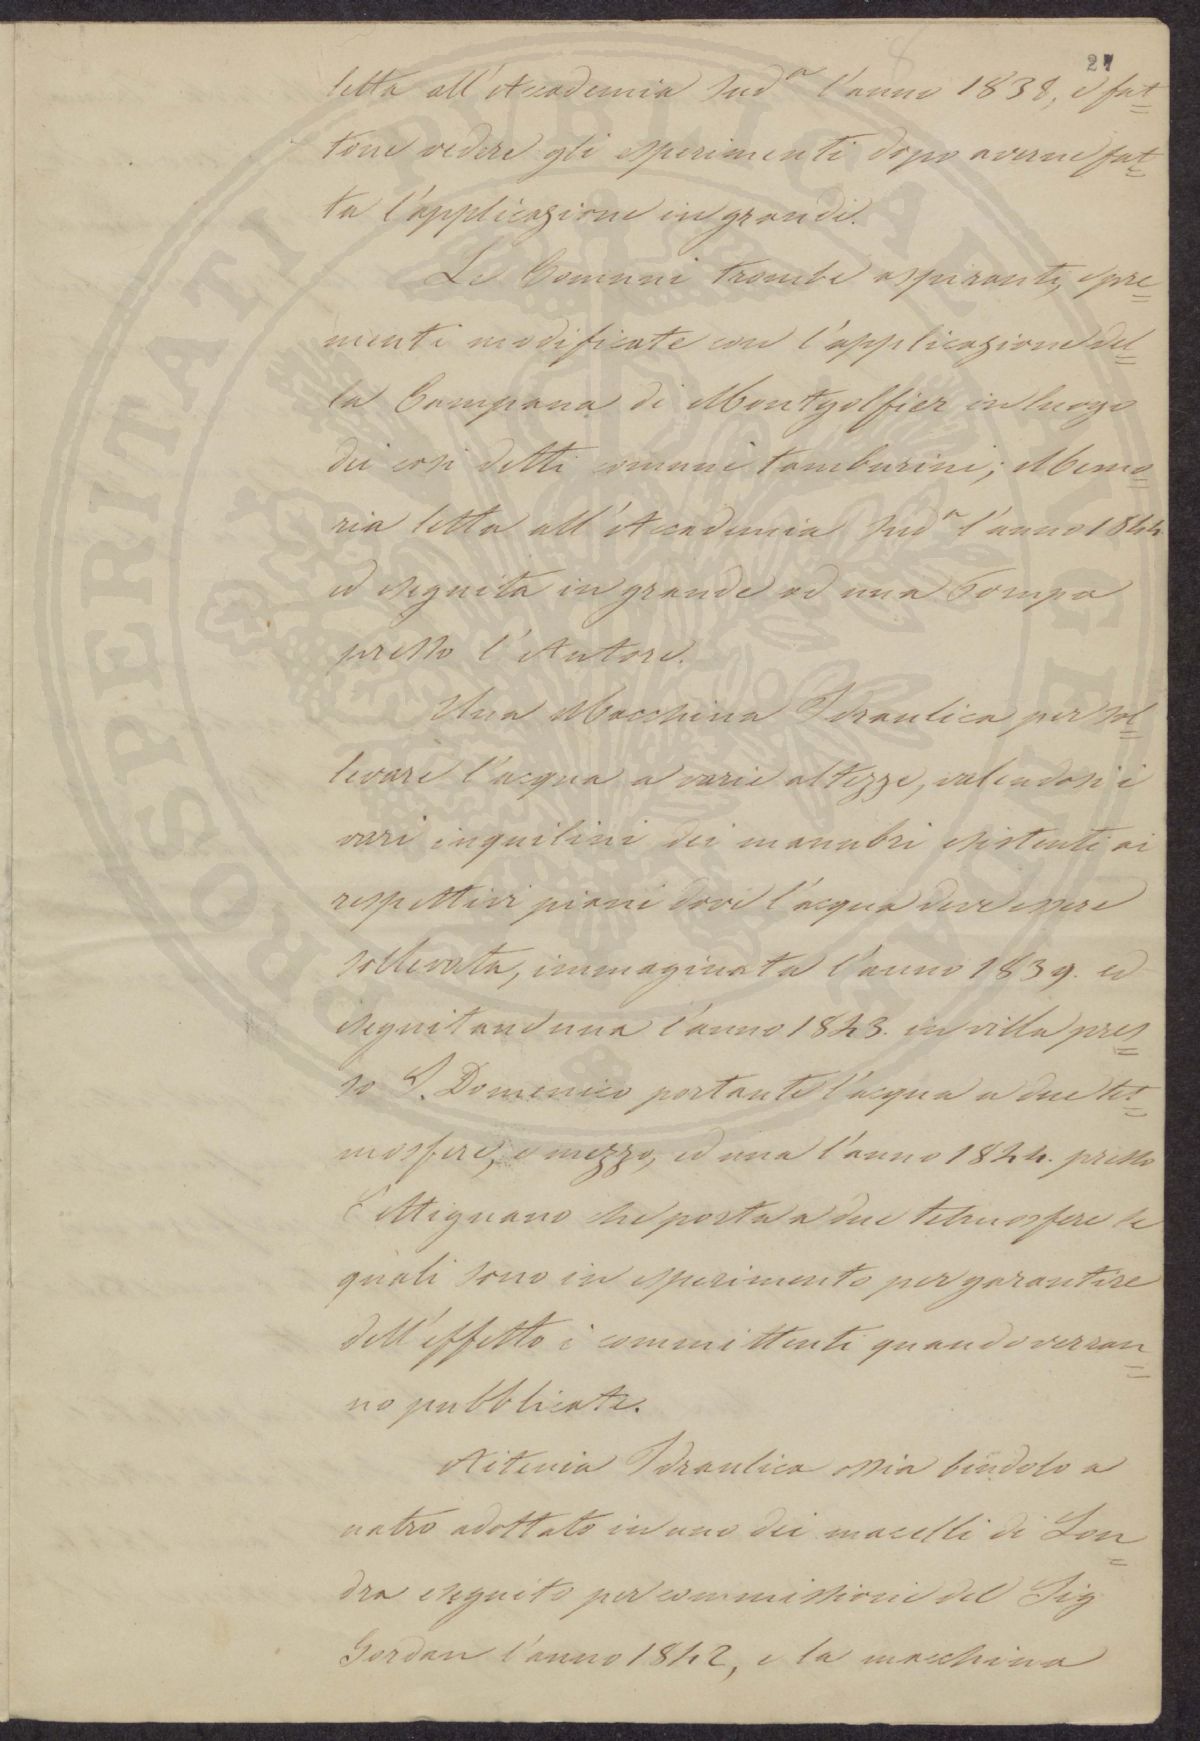 27
letta all'Accademia Sud.a l'anno 1838, e fat=
tone vedere gli esperimenti dopo averne fat=
ta l'applicazione in grandi.
Le Comuni trombe aspiranti, e pre=
menti modificate con l'applicazione del=
la Campana di Montgolfier in luogo
dei così detti comuni tamburini; Memo=
ria letta all'Accademia Sud.a l'anno 1844
ed eseguita in grande ad una Tompa
presso l'Autore.
Una Macchina Idraulica per sol=
levare l'acqua a varie altezze, valendosi i
vari inquilini dei manubri esistenti ai
respettivi piani dove l'acqua deve essere
sollevata, immaginata l'anno 1839. ed
eseguitane una l'anno 1843. in villa pres=
so S. Domenico portante l'acqua a due tet=
mosfere, e mezzo, ed una l'anno 1844. presso
Settignano che porta a due tetmosfere le
quali sono in esperimento per garantire
dell'effetto i committenti quando verran=
no pubblicate.
Idraulica ossia bindolo a
nastro adottato in uno dei macelli di Lon=
dra eseguito per commissione del Sig
Gordan l'anno 1842, e la macchina
PROSPERITATI PUBLICAE AUGENDAE